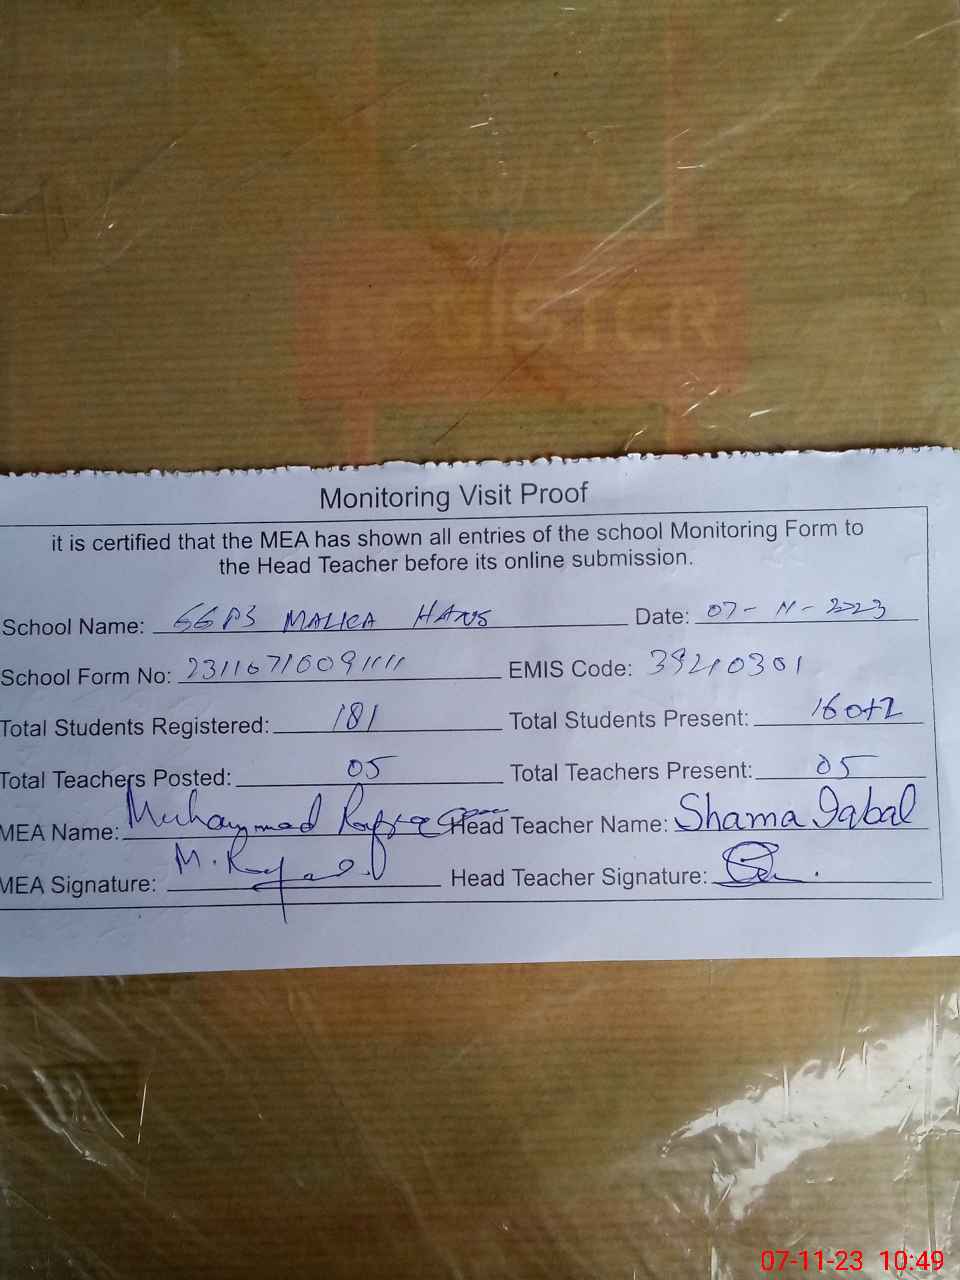 REGISTER
Monitoring Visit Proof
it is certified that the MEA has shown all entries of the school Monitoring Form to
the Head Teacher before its online submission.
School Name: GGPS MALKA HANS Date: 07-11-2023
School Form No: EMIS Code: 39210301
Total Students Registered: 181 Total Students Present: 160+2
Total Teachers Posted: 05 Total Teachers Present: 05
MEA Name: Muhammad Head Teacher Name: Shama Iqbal
MEA Signature: Head Teacher Signature:
07-11-23 10:49